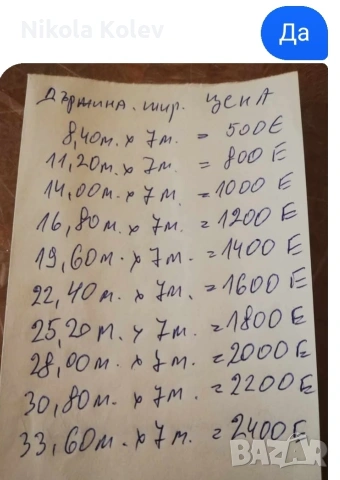 Nikola Kolev
Да
Държина. шир. цена
8,40м. x 7м. = 500 E
11,20м. x 7м. = 800 E
14,00м. x 7м. = 1000 E
16,80м. x 7м. = 1200 E
19,60м. x 7м. = 1400 E
22,40м. x 7м. = 1600 E
25,20м. x 7м. = 1800 E
28,00м. x 7м. = 2000 E
30,80м. x 7м. = 2200 E
33,60м. x 7м. = 2400 E
BAZAR